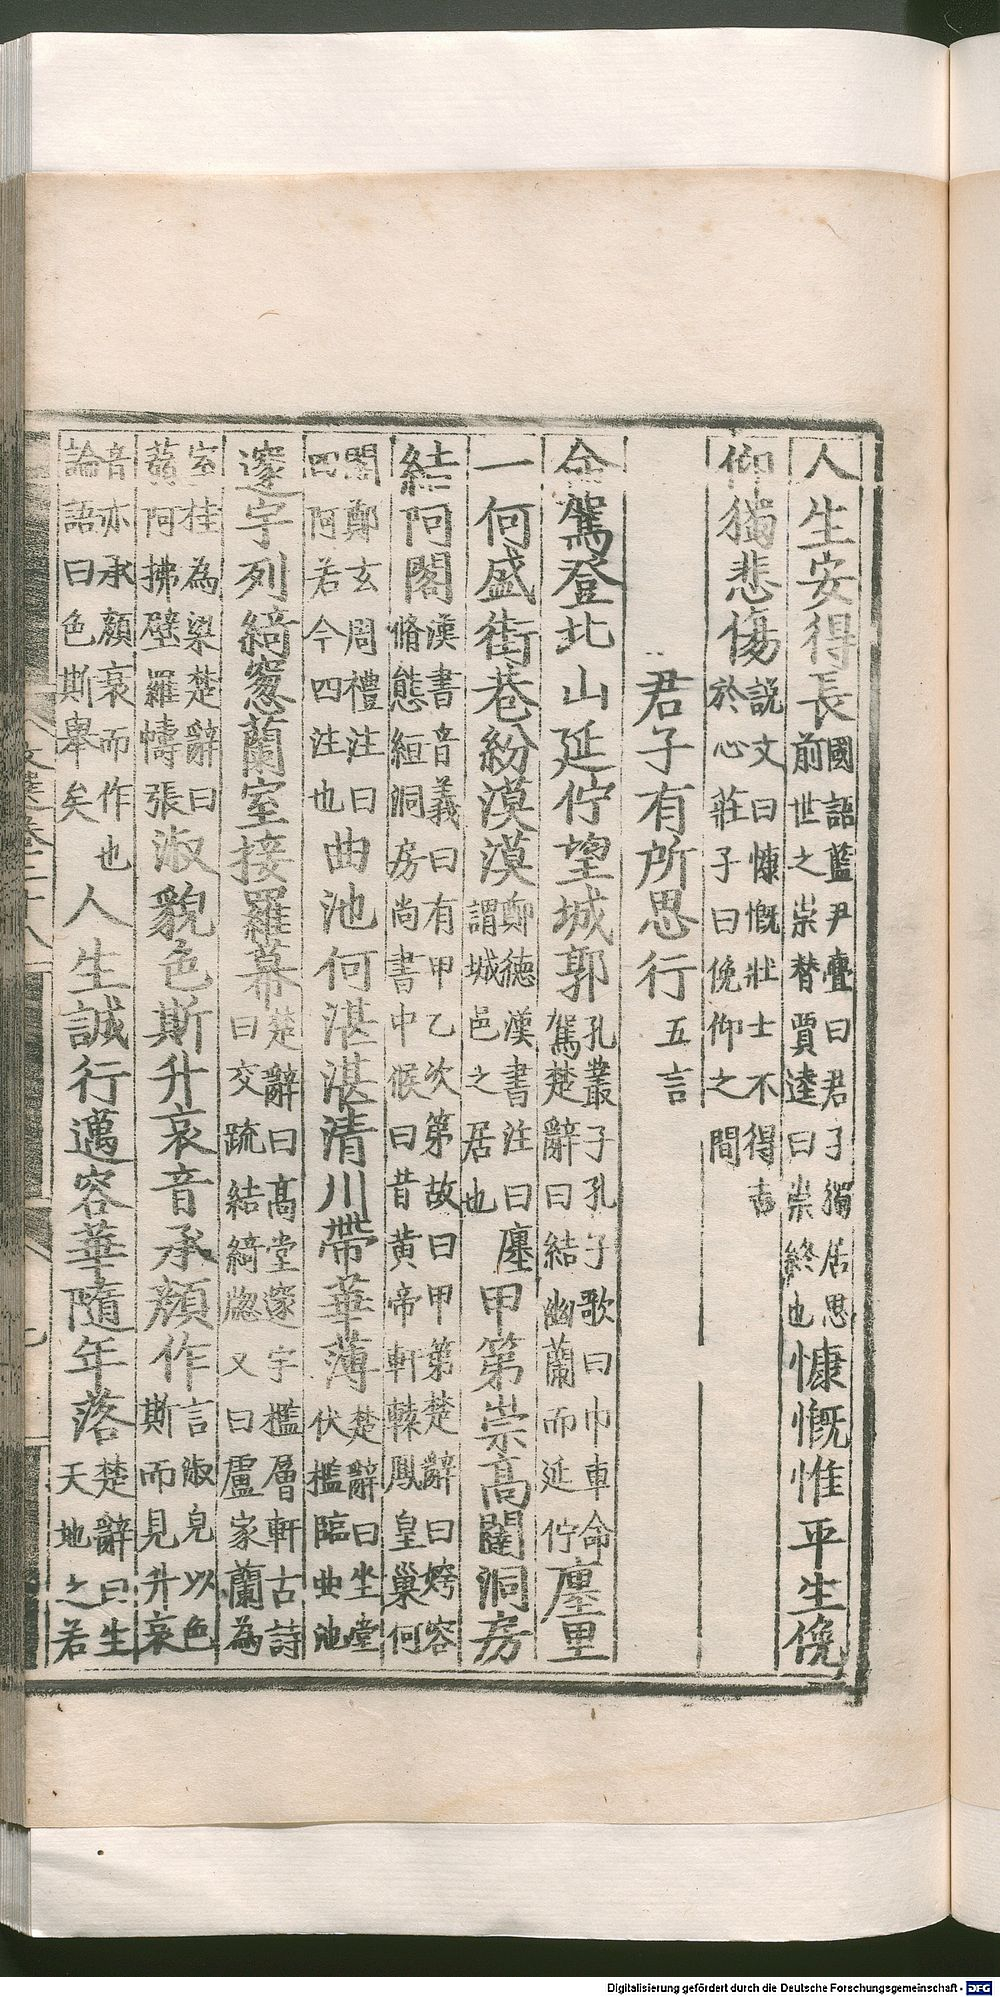 人生安得長國語藍尹亹曰君子獨居思前世之崇替賈逵曰崇終也慷慨惟平生俛
仰獨悲傷說文曰慷慨壯士不得志於心莊子曰俛仰之間
君子有所思行五言
命駕登北山延佇望城郭孔叢子孔子歌曰巾車命駕楚辭曰結幽蘭而延佇廛里
一何盛街巷紛漠漠鄭德漢書注曰廛謂城邑之居也甲第崇高闥洞房
結阿閣漢書音義曰有甲乙次第故曰甲第楚辭曰姱容脩態絙洞房尚書中候曰昔黃帝軒轅鳳皇巢何
閣鄭玄周禮注曰四阿若今四注也曲池何湛湛清川帶華薄楚辭曰坐堂伏檻臨曲池
邃宇列綺窻蘭室接羅幕楚辭曰高堂邃宇檻層軒古詩曰交疏結綺牕又曰盧家蘭為
室桂為梁楚辭曰蒻阿拂壁羅幬張淑貌色斯升哀音承顏作言淑皃以色斯而見升哀
音亦承顏哀而作也論語曰色斯舉矣人生誠行邁容華隨年落楚辭曰生天地之若
文選卷二十八
Digitalisierung gefördert durch die Deutsche Forschungsgemeinschaft - DFG